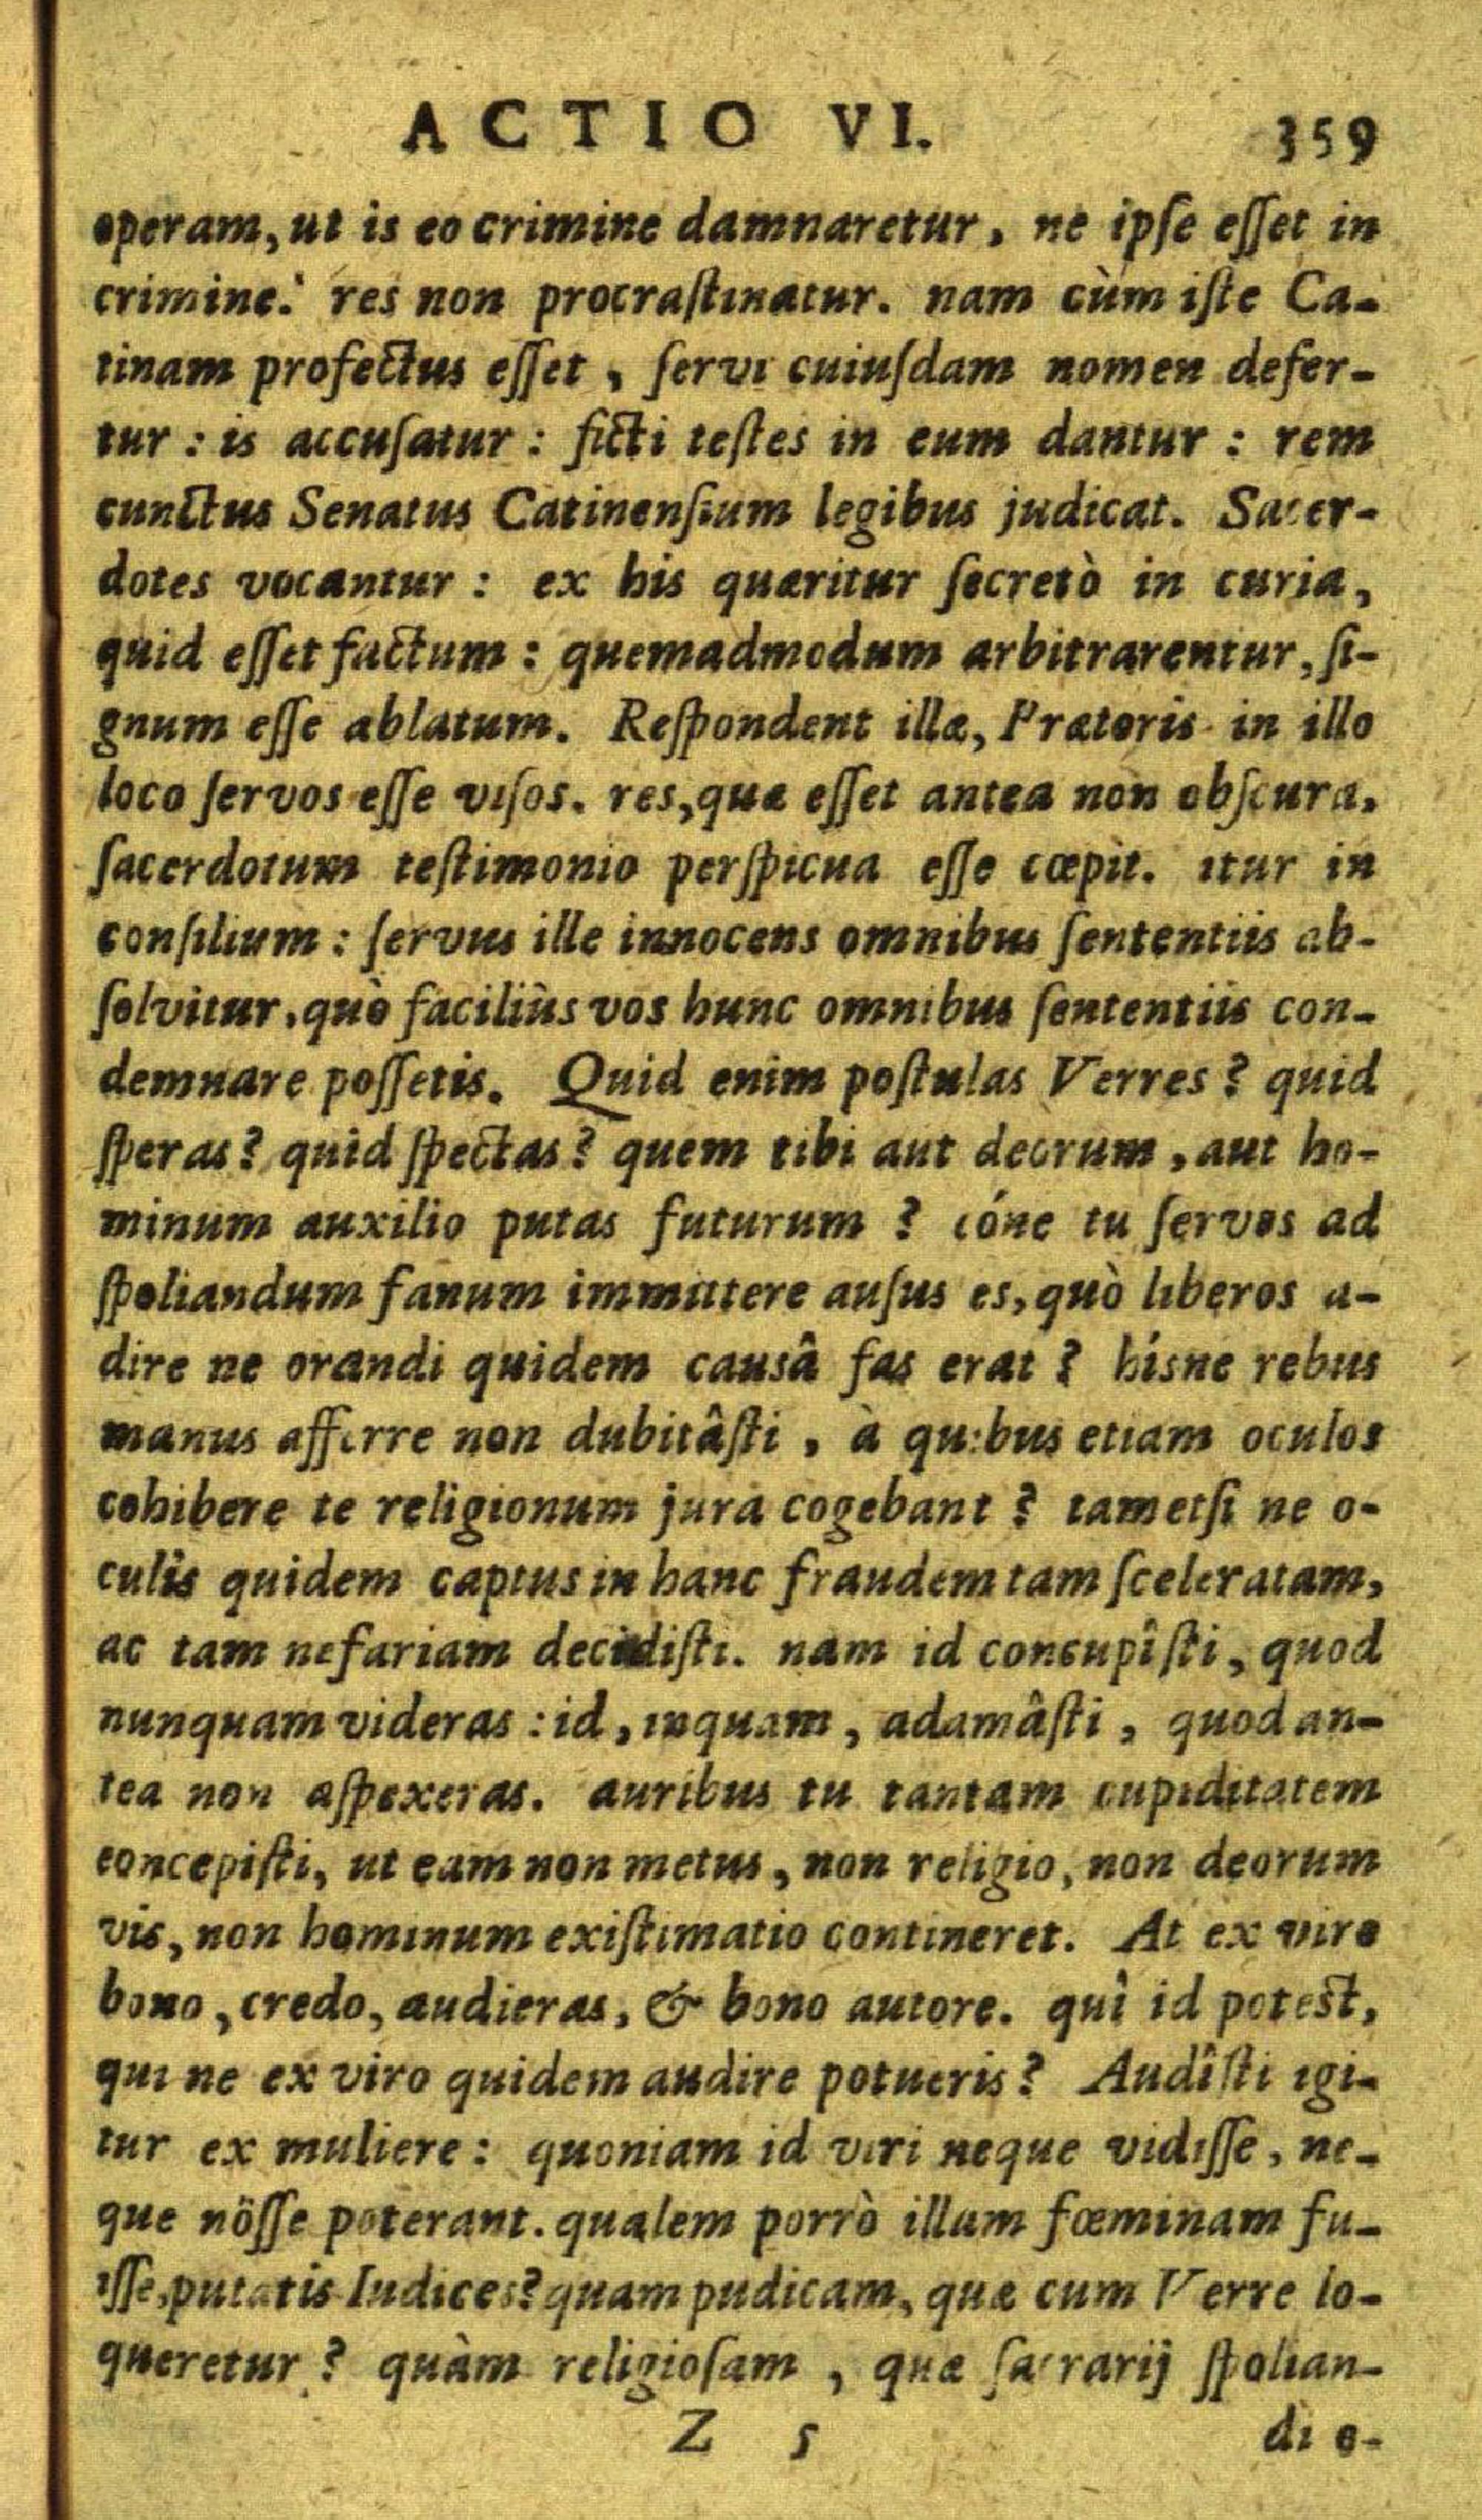 ACTIO VI. 359
operam, ut is eo crimine damnaretur, ne ipſe eſſet in
crimine: res non procraſtinatur. nam cùm iſte Ca-
tinam profectus eſſet, ſervi cuiuſdam nomen defer-
tur : is accuſatur : ficti teſtes in eum dantur : rem
cunctus Senatus Catinenſium legibus judicat. Sacer-
dotes vocantur : ex his quæritur ſecretò in curia,
quid eſſet factum : quemadmodum arbitrarentur, ſi-
gnum eſſe ablatum. Reſpondent illæ, Prætoris in illo
loco ſervos eſſe viſos. res, quæ eſſet antea non obſcura,
ſacerdotum teſtimonio perſpicua eſſe cœpit. itur in
conſilium : ſervus ille innocens omnibus ſententiis ab-
ſolvitur, quò faciliùs vos hunc omnibus ſententiis con-
demnare poſſetis. Quid enim poſtulas Verres ? quid
ſperas? quid ſpectas? quem tibi aut deorum, aut ho-
minum auxilio putas futurum ? eóne tu ſervos ad
ſpoliandum fanum immittere auſus es, quò liberos a-
dire ne orandi quidem causâ fas erat ? hísne rebus
manus afferre non dubitâſti, à quibus etiam oculos
cohibere te religionum jura cogebant ? tametſi ne o-
culis quidem captus in hanc fraudem tam ſceleratam,
ac tam nefariam decidiſti. nam id concupîſti, quod
nunquam videras : id, inquam, adamâſti, quod an-
tea non aſpexeras. auribus tu tantam cupiditatem
concepiſti, ut eam non metus, non religio, non deorum
vis, non hominum exiſtimatio contineret. At ex viro
bono, credo, audieras, & bono autore. quî id poteſt,
qui ne ex viro quidem audire potueris? Audîſti igi-
tur ex muliere : quoniam id viri neque vidiſſe, ne-
que nöſſe poterant. qualem porrò illam fœminam fu-
iſſe, putatis Iudices? quam pudicam, quæ cum Verre lo-
queretur ? quàm religioſam, quæ ſacrarij ſpolian-
Z 5 di o-